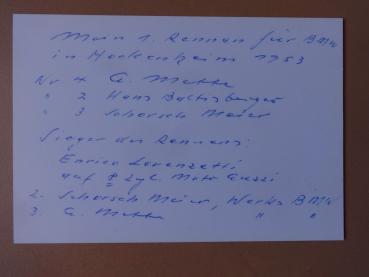 Mein 1. Rennen für BMW
in Hockenheim 1953
Nr 4 G. Mette
" 2 Hans Baltisberger
" 3 Schorsch Meier
Sieger des Rennens:
Enrico Lorenzetti
auf Zyl. Moto Guzzi
2. Schorsch Meier, Werks BMW
3. G. Mette " "